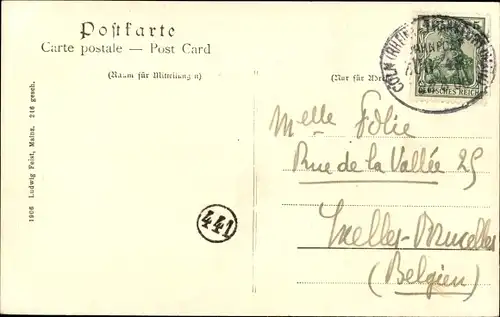 Postkarte
Carte postale — Post Card
(Raum für Mitteilung n)
(Nur für
5
DEUTSCHES REICH
CÖLN (RHEIN)
BAHNPOST
Melle Folie
Rue de la Vallée 25
Ixelles-Bruxelles
(Belgien)
441
1906 Ludwig Feist, Mainz. 216 gesch.